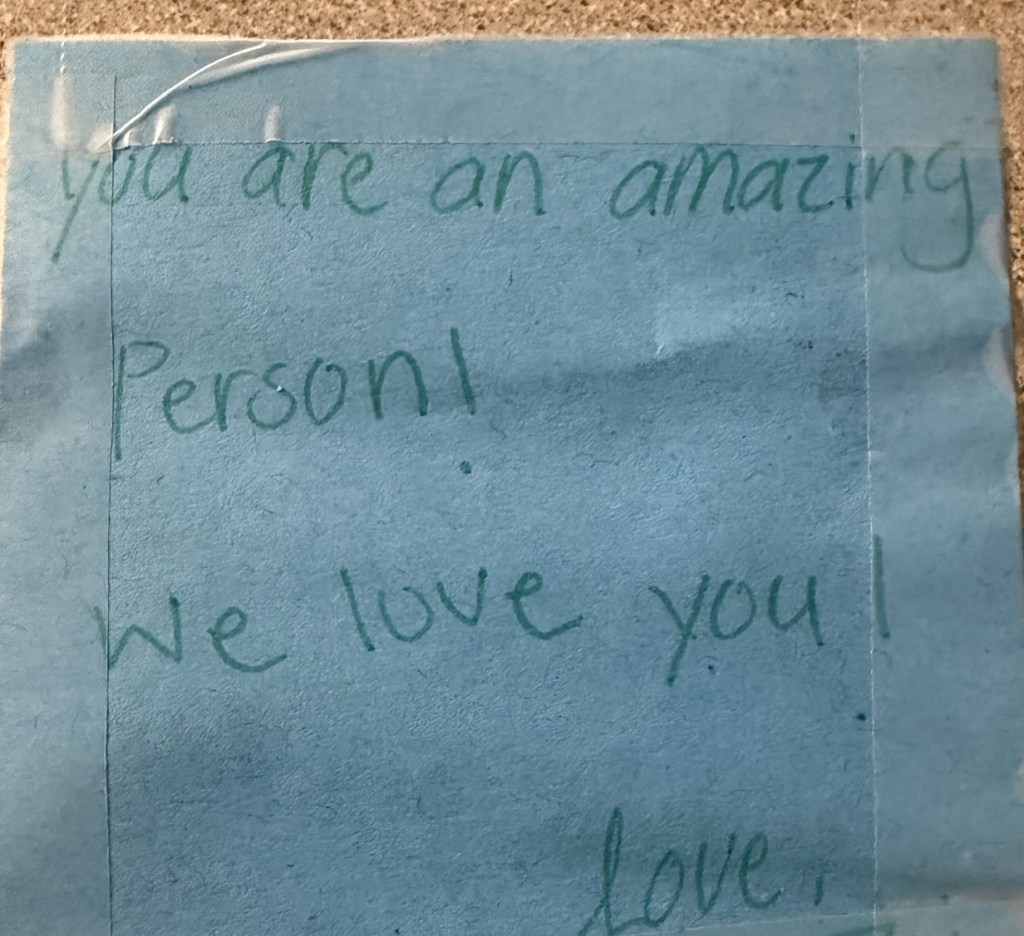 you are an amazing
Person!
We love you!
love,